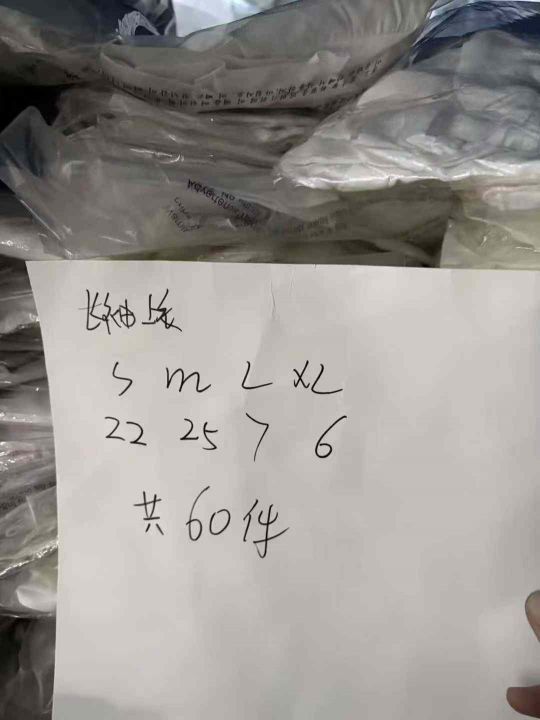 长袖上衣
S M L XL
22 25 7 6
共60件